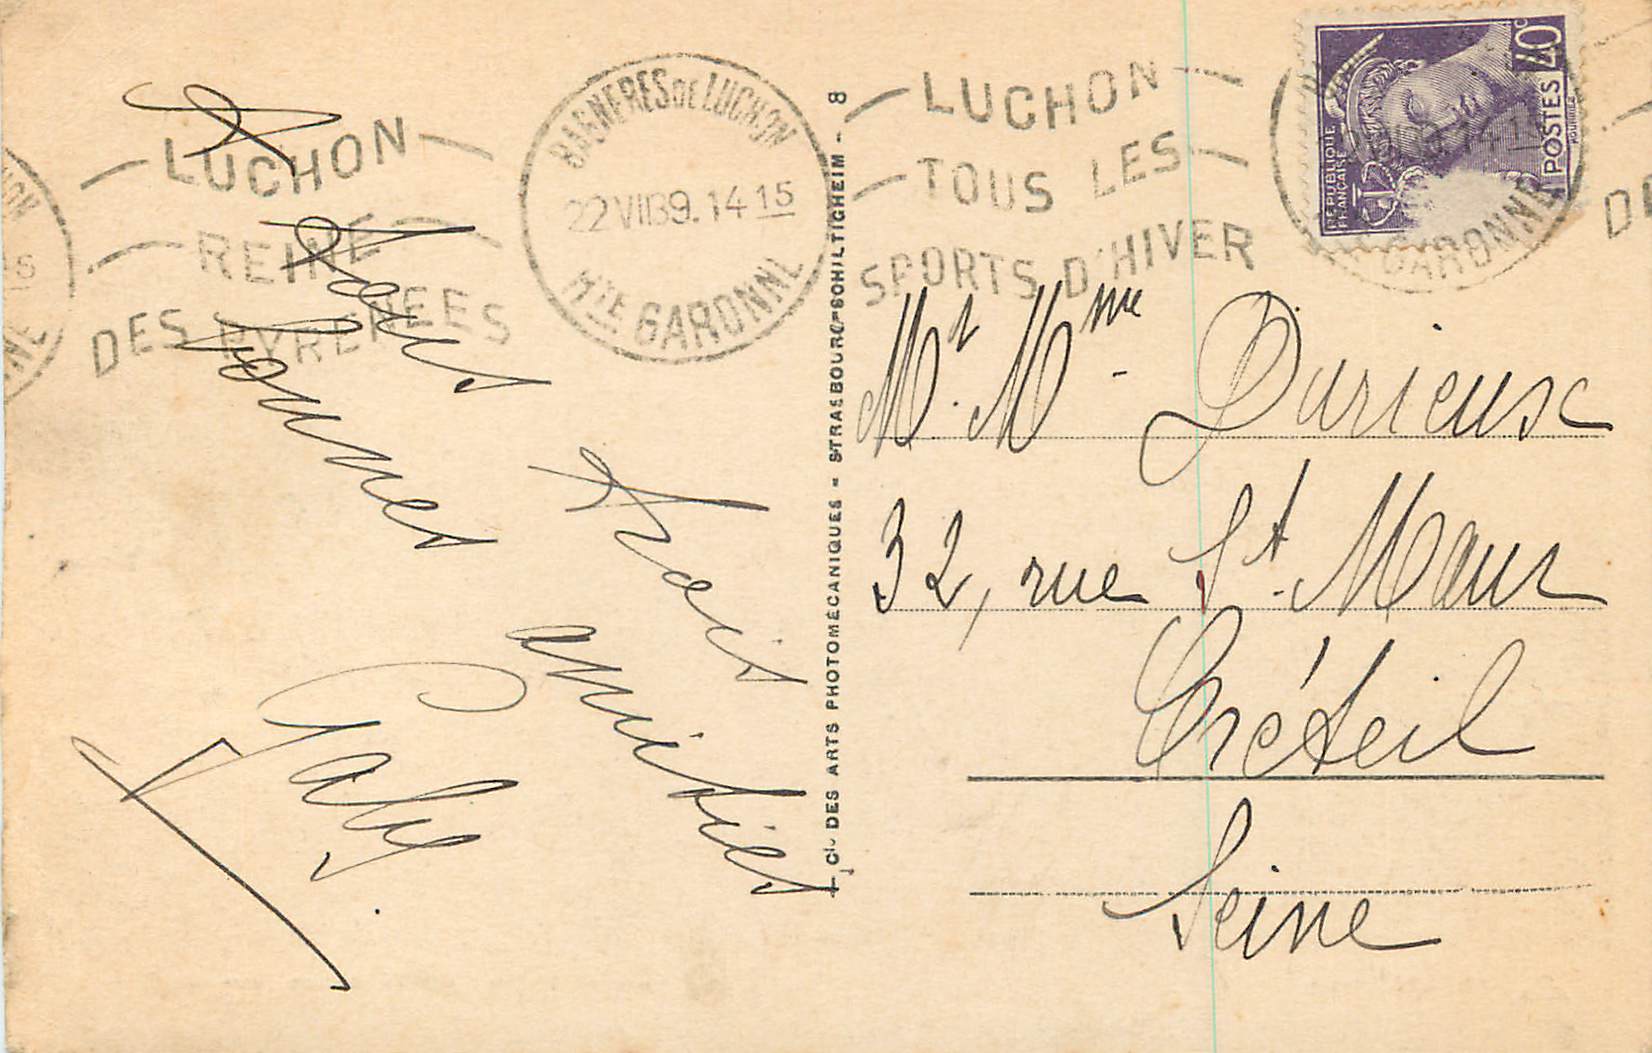 LUCHON
REINE
DES PYRENEES
BAGNERES DE LUCHON
22 VII 39. 14 15
HTE GARONNE
LUCHON
TOUS LES
SPORTS D'HIVER
40c
POSTES
REPUBLIQUE
FRANÇAISE
GARONNE
DE
A tous
trois
bonnes
amitiés
Gaby
Cie DES ARTS PHOTOMÉCANIQUES - STRASBOURG-SCHILTIGHEIM - 8
Mr. Mme Darieux
32, rue St. Maur
Créteil
Seine